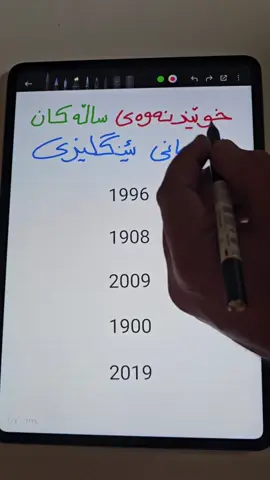 خوێندنەوەی ساڵەکان
ئینگلیزی
1996
1908
2009
1900
2019